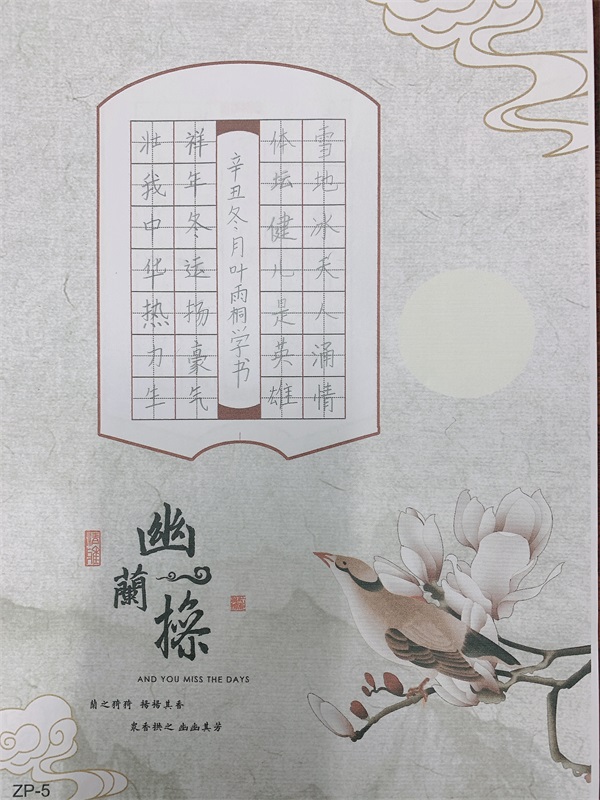 雪地冰天人涌情
体坛健儿是英雄
辛丑冬月叶雨桐学书
祥年冬运扬豪气
壮我中华热力生
幽
蘭
操
AND YOU MISS THE DAYS
蘭之猗猗 扬扬其香
众香拱之 幽幽其芳
ZP-5